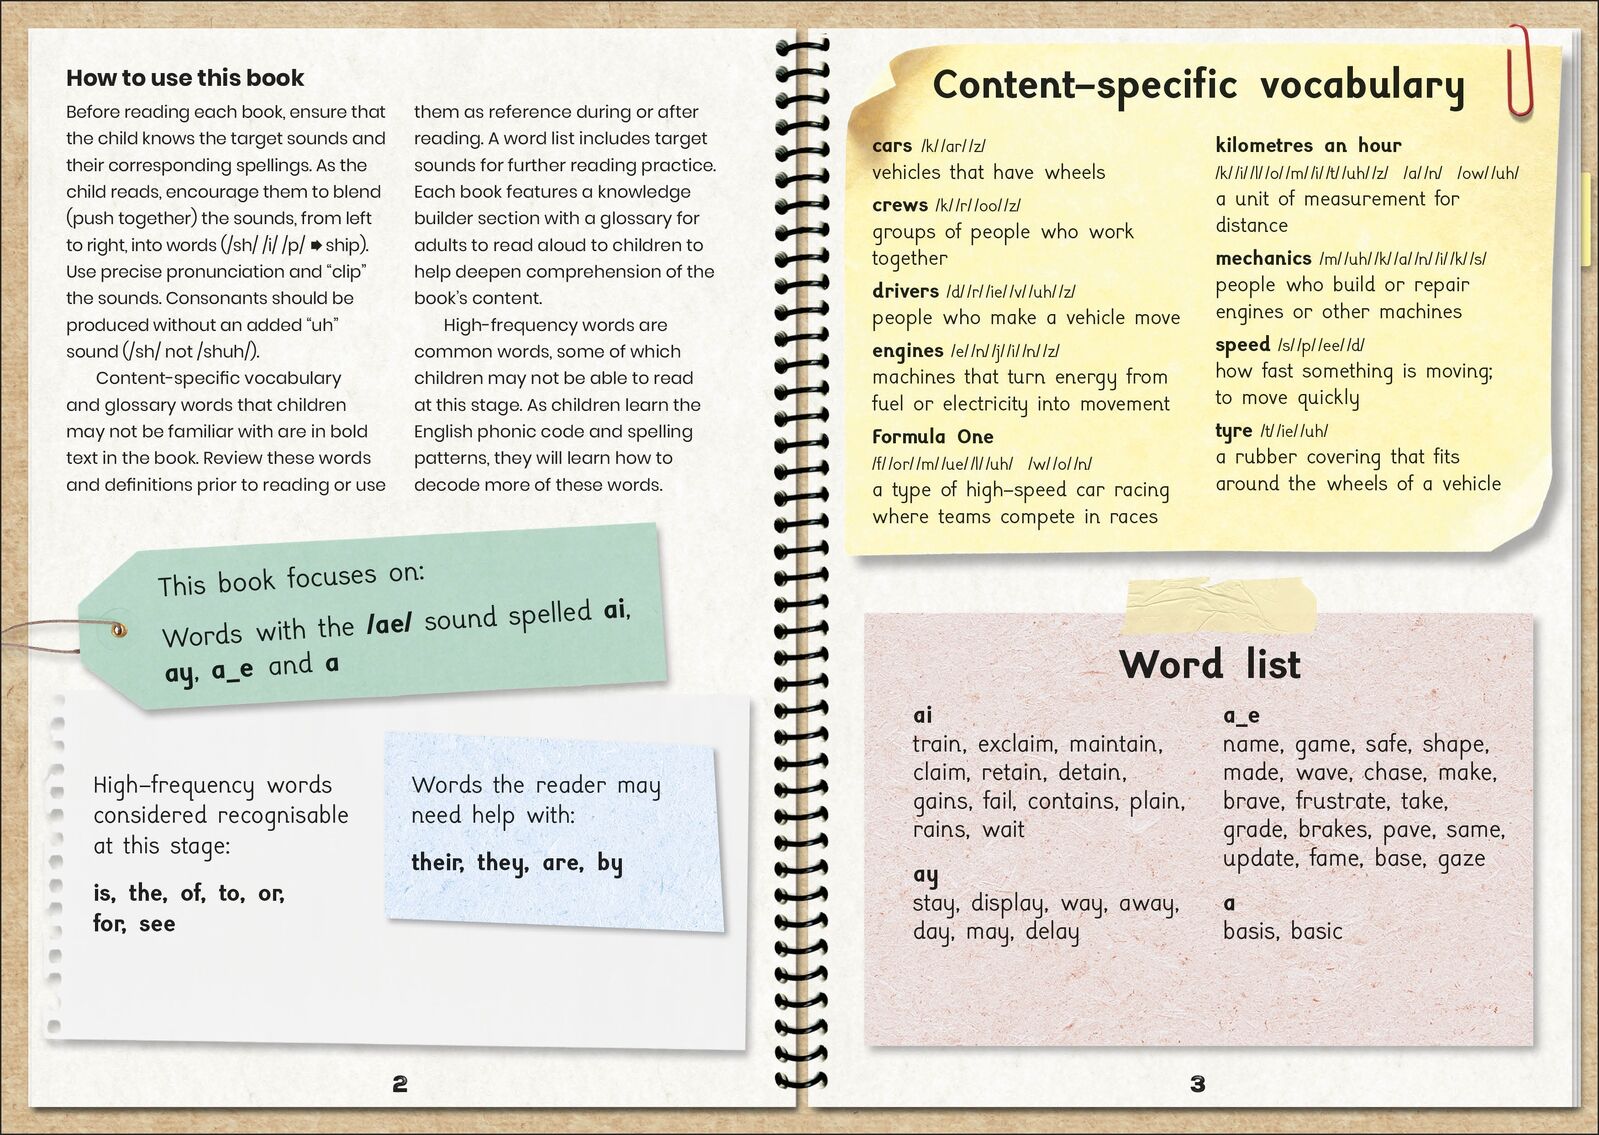 How to use this book
Before reading each book, ensure that
the child knows the target sounds and
their corresponding spellings. As the
child reads, encourage them to blend
(push together) the sounds, from left
to right, into words (/sh/ /i/ /p/ ➡ ship).
Use precise pronunciation and “clip”
the sounds. Consonants should be
produced without an added “uh”
sound (/sh/ not /shuh/).
Content-specific vocabulary
and glossary words that children
may not be familiar with are in bold
text in the book. Review these words
and definitions prior to reading or use
them as reference during or after
reading. A word list includes target
sounds for further reading practice.
Each book features a knowledge
builder section with a glossary for
adults to read aloud to children to
help deepen comprehension of the
book’s content.
High-frequency words are
common words, some of which
children may not be able to read
at this stage. As children learn the
English phonic code and spelling
patterns, they will learn how to
decode more of these words.
This book focuses on:
Words with the /ae/ sound spelled ai,
ay, a_e and a
High-frequency words
considered recognisable
at this stage:
is, the, of, to, or,
for, see
Words the reader may
need help with:
their, they, are, by
2
Content-specific vocabulary
cars /k//ar//z/
vehicles that have wheels
crews /k//r//oo//z/
groups of people who work
together
drivers /d//r//ie//v//uh//z/
people who make a vehicle move
engines /e//n//j//i//n//z/
machines that turn energy from
fuel or electricity into movement
Formula One
/f//or//m//ue//l//uh/ /w//o//n/
a type of high-speed car racing
where teams compete in races
kilometres an hour
/k//i//l//o//m//i//t//uh//z/ /a//n/ /ow//uh/
a unit of measurement for
distance
mechanics /m//uh//k//a//n//i//k//s/
people who build or repair
engines or other machines
speed /s//p//ee//d/
how fast something is moving;
to move quickly
tyre /t//ie//uh/
a rubber covering that fits
around the wheels of a vehicle
Word list
ai
train, exclaim, maintain,
claim, retain, detain,
gains, fail, contains, plain,
rains, wait
ay
stay, display, way, away,
day, may, delay
a_e
name, game, safe, shape,
made, wave, chase, make,
brave, frustrate, take,
grade, brakes, pave, same,
update, fame, base, gaze
a
basis, basic
3